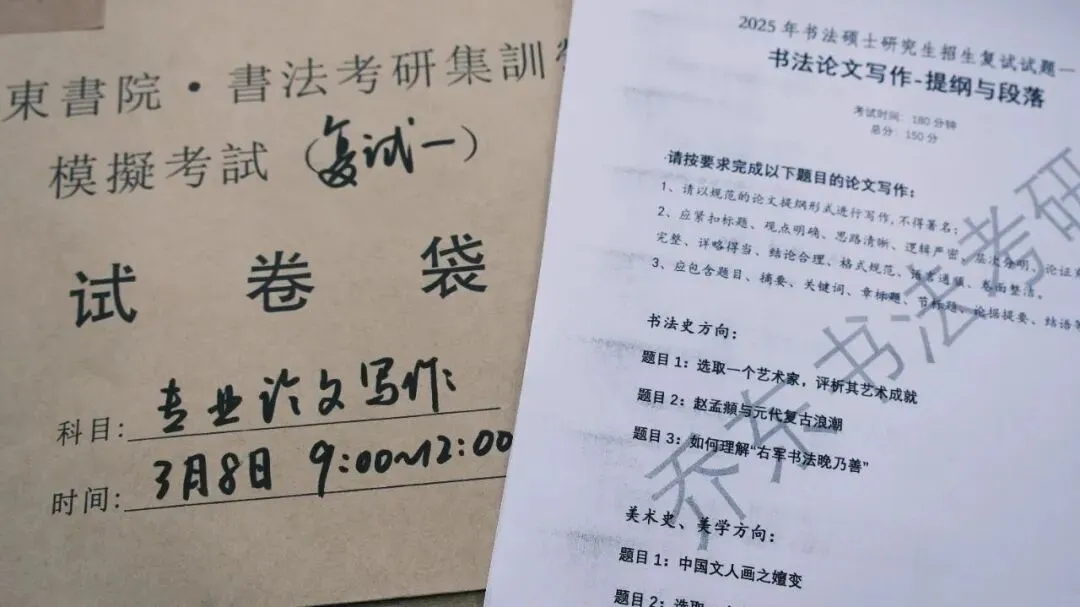 東書院·書法考研集訓
模擬考試（复试一）
试卷袋
科目：专业论文写作
时间：3月8日 9:00~12:00
2025年书法硕士研究生招生复试试题一
书法论文写作-提纲与段落
考试时间：180分钟
总分：150分
请按要求完成以下题目的论文写作：
1、请以规范的论文提纲形式进行写作,不得署名；
2、应紧扣标题、观点明确、思路清晰、逻辑严密、层次分明、论证
完整、详略得当、结论合理、格式规范、语言通顺、卷面整洁。
3、应包含题目、摘要、关键词、章标题、节标题、论据提要、结语
书法史方向：
题目1：选取一个艺术家，评析其艺术成就
题目2：赵孟頫与元代复古浪潮
题目3：如何理解“右军书法晚乃善”
美术史、美学方向：
题目1：中国文人画之嬗变
题目2：选取
乔东书法考研